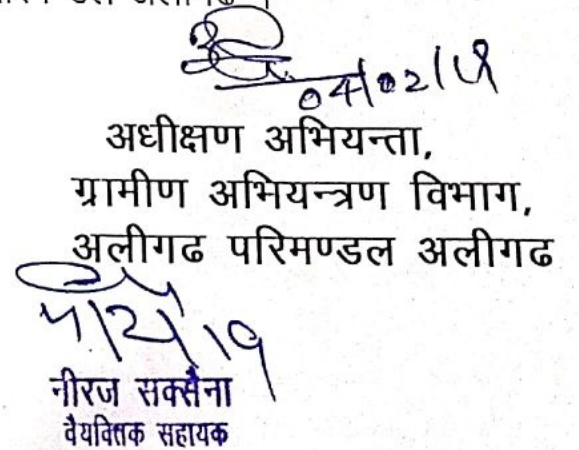 04/02/19
अधीक्षण अभियन्ता,
ग्रामीण अभियन्त्रण विभाग,
अलीगढ परिमण्डल अलीगढ
नीरज सक्सैना
वैयक्तिक सहायक